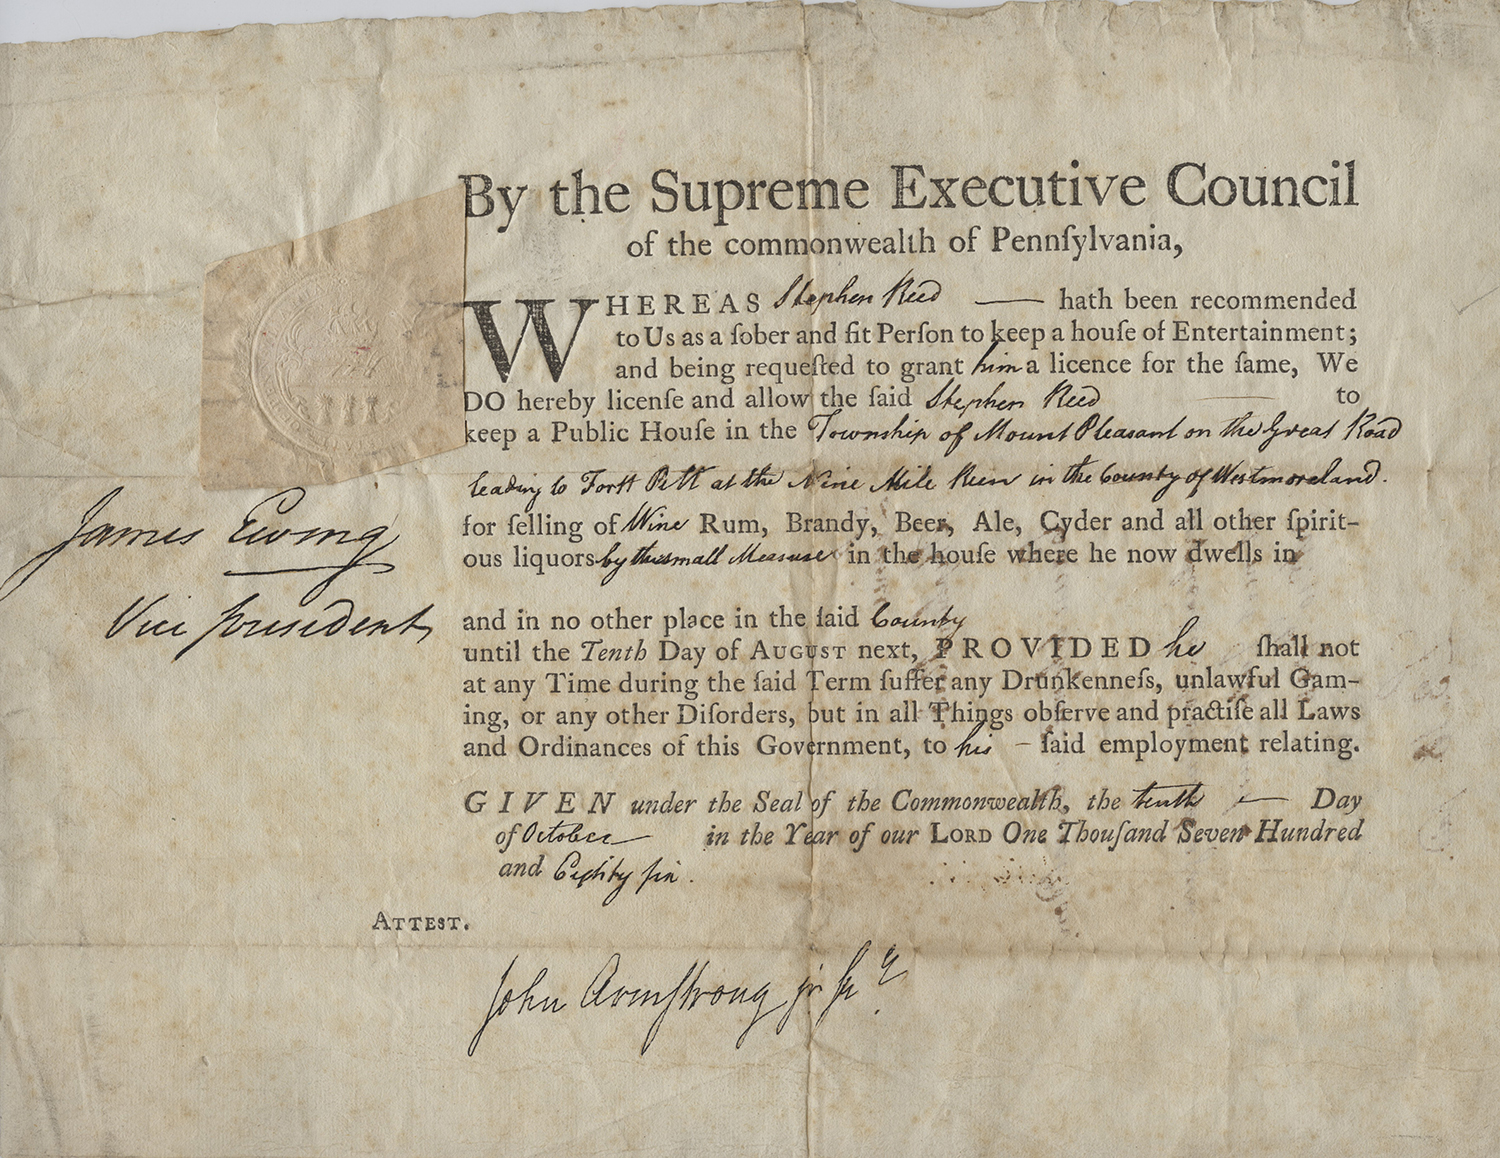 By the Supreme Executive Council
of the commonwealth of Pennſylvania,
WHEREAS Stephen Reed —— hath been recommended
to Us as a ſober and fit Perſon to keep a houſe of Entertainment;
and being requeſted to grant him a licence for the ſame, We
DO hereby licenſe and allow the ſaid Stephen Reed —— to
keep a Public Houſe in the Township of Mount Pleasant on the Great Road
leading to Fortt Pitt at the Nine Mile Reen in the County of Westmoreland.
for ſelling of Wine Rum, Brandy, Beer, Ale, Cyder and all other ſpirit-
ous liquors by the small Measure in the houſe where he now dwells in
and in no other place in the ſaid County
until the Tenth Day of AUGUST next, PROVIDED he ſhall not
at any Time during the ſaid Term ſuffer any Drunkenneſs, unlawful Gam-
ing, or any other Diſorders, but in all Things obſerve and practiſe all Laws
and Ordinances of this Government, to his – ſaid employment relating.
GIVEN under the Seal of the Commonwealth, the tenth — Day
of October — in the Year of our LORD One Thouſand Seven Hundred
and Eighty ſix.
James Ewing
Vice president
ATTEST.
John Armſtrong jr. Sy